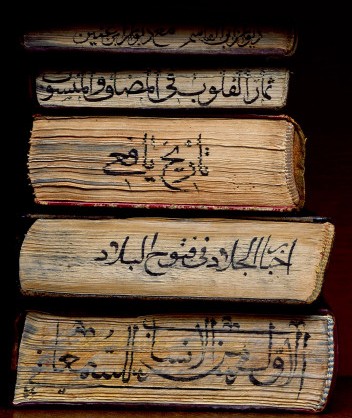 ابي القاسم
ثمار القلوب في المضاف والمنسوب
تاريخ يافعي
اخبار الجلاد في فتوح البلاد
الاول من الانساب للسمعاني